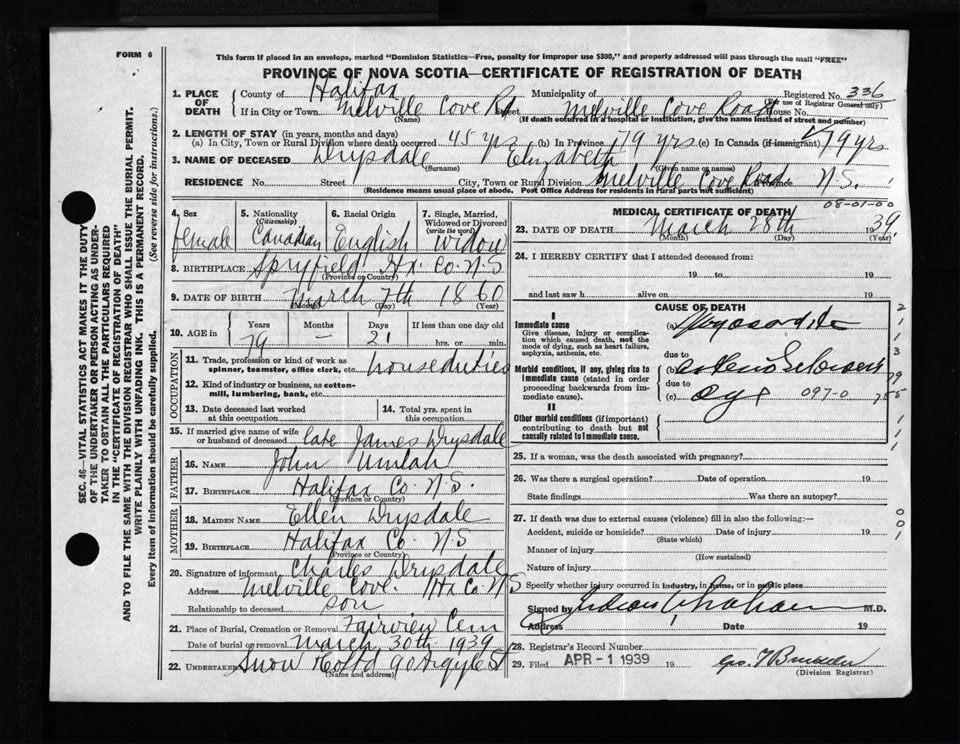 FORM 6
This form if placed in an envelope, marked "Dominion Statistics—Free, penalty for improper use $300," and properly addressed will pass through the mail "FREE"
PROVINCE OF NOVA SCOTIA—CERTIFICATE OF REGISTRATION OF DEATH
1. PLACE OF DEATH County of Halifax Municipality of Registered No. 336
(For use of Registrar General only)
If in City or Town Melville Cove Rd Street Melville Cove Road House No.
(Name) (If death occurred in a hospital or institution, give the name instead of street and number)
2. LENGTH OF STAY (in years, months and days)
(a) In City, Town or Rural Division where death occurred 45 yrs (b) In Province 79 yrs (c) In Canada (if immigrant) 79 yrs
3. NAME OF DECEASED Drysdale Elizabeth
(Surname) (Given name or names)
RESIDENCE No. Street City, Town or Rural Division Melville Cove Road Province N.S.
(Residence means usual place of abode. Post Office Address for residents in rural parts not sufficient)
4. Sex female
5. Nationality (Citizenship) Canadian
6. Racial Origin English
7. Single, Married, Widowed or Divorced (write the word) Widow
8. BIRTHPLACE Spryfield Hx. Co. N.S
(Province or Country)
9. DATE OF BIRTH March 7th 1860
(Month) (Day) (Year)
10. AGE in Years 79 Months — Days 21 If less than one day old hrs. or min.
OCCUPATION
11. Trade, profession or kind of work as spinner, teamster, office clerk, etc. house duties
12. Kind of industry or business, as cotton-mill, lumbering, bank, etc.
13. Date deceased last worked at this occupation
14. Total yrs. spent in this occupation
15. If married give name of wife or husband of deceased late James Drysdale
FATHER
16. NAME John Umlah
17. BIRTHPLACE Halifax Co. N.S.
(Province or Country)
MOTHER
18. MAIDEN NAME Ellen Drysdale
19. BIRTHPLACE Halifax Co. N.S
(Province or Country)
20. Signature of informant Charles Drysdale
Address Melville Cove. Hx Co N.S
Relationship to deceased son
21. Place of Burial, Cremation or Removal Fairview Cem
Date of burial or removal March 30th 1939
22. UNDERTAKER Snow 90 Argyle St
(Name and address)
MEDICAL CERTIFICATE OF DEATH
08-01-00
23. DATE OF DEATH March 28th 1939.
(Month) (Day) (Year)
24. I HEREBY CERTIFY that I attended deceased from:
19 to 19
and last saw h alive on 19
CAUSE OF DEATH
I
Immediate cause
Give disease, injury or complication which caused death, not the mode of dying, such as heart failure, asphyxia, asthenia, etc.
(a)
due to
Morbid conditions, if any, giving rise to immediate cause (stated in order proceeding backwards from immediate cause).
(b)
due to
(c) age 097-0
II
Other morbid conditions (if important) contributing to death but not causally related to immediate cause.
25. If a woman, was the death associated with pregnancy?
26. Was there a surgical operation? Date of operation 19
State findings Was there an autopsy?
27. If death was due to external causes (violence) fill in also the following:—
Accident, suicide or homicide? Date of injury 19
(State which)
Manner of injury
(How sustained)
Nature of injury
Specify whether injury occurred in industry, in home, or in public place
Signed by M.D.
Address Date 19
28. Registrar's Record Number
29. Filed APR - 1 1939 19
(Division Registrar)
SEC. 46—VITAL STATISTICS ACT MAKES IT THE DUTY
OF THE UNDERTAKER OR PERSON ACTING AS UNDER-
TAKER TO OBTAIN ALL THE PARTICULARS REQUIRED
IN THE "CERTIFICATE OF REGISTRATION OF DEATH"
AND TO FILE THE SAME WITH THE DIVISION REGISTRAR WHO SHALL ISSUE THE BURIAL PERMIT.
WRITE PLAINLY WITH UNFADING INK. THIS IS A PERMANENT RECORD.
Every item of information should be carefully supplied. (See reverse side for instructions.)